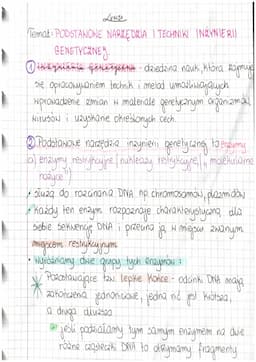 Lekcja
Temat: PODSTAWOWE NARZĘDZIA I TECHNIKI INŻYNIERII
GENETYCZNEJ.
① inżynieria genetyczna - dziedzina nauk, która zajmuje
się opracowywaniem technik i metod umożliwiających
wprowadzenie zmian w materiale genetycznym organizmów,
wirusów i uzyskanie określonych cech.
② Podstawowe narzędzia inżynierii genetycznej to enzymy
a) enzymy restrykcyjne (nukleazy restrykcyjne), "molekularne
nożyce")
• służą do rozcinania DNA np. chromosomów, plazmidów
• każdy ten enzym rozpoznaje charakterystyczną dla
siebie sekwencję DNA i przecina ją w miejscu zwanym
miejscem restrykcyjnym
• wyróżniamy dwie grupy tych enzymów:
* Pozostawiające tzw. lepkie końce - odcinki DNA mają
zakończenia jednoniciowe, jedna nić jest krótsza,
a druga dłuższa
jeśli podziałamy tym samym enzymem na dwie
różne cząsteczki DNA to otrzymamy fragmenty